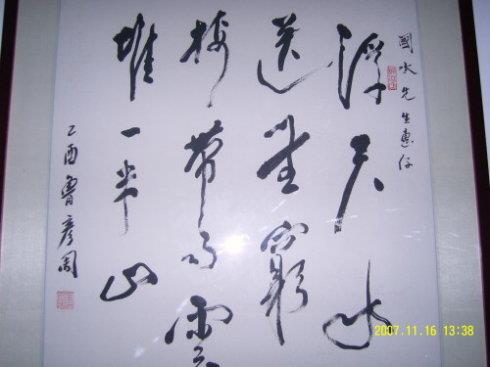 國水先生惠存
浮天水
送無窮
樹帶雨雲
堆一半山
乙酉魯彥周
2007.11.16 13:38